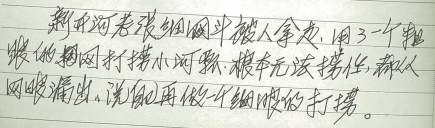 新开河老张细网斗被人拿走,用了一个粗
眼的捆网打捞小河瓢,根本无法捞住,都从
网眼漏出。说他再做一个细眼的打捞。